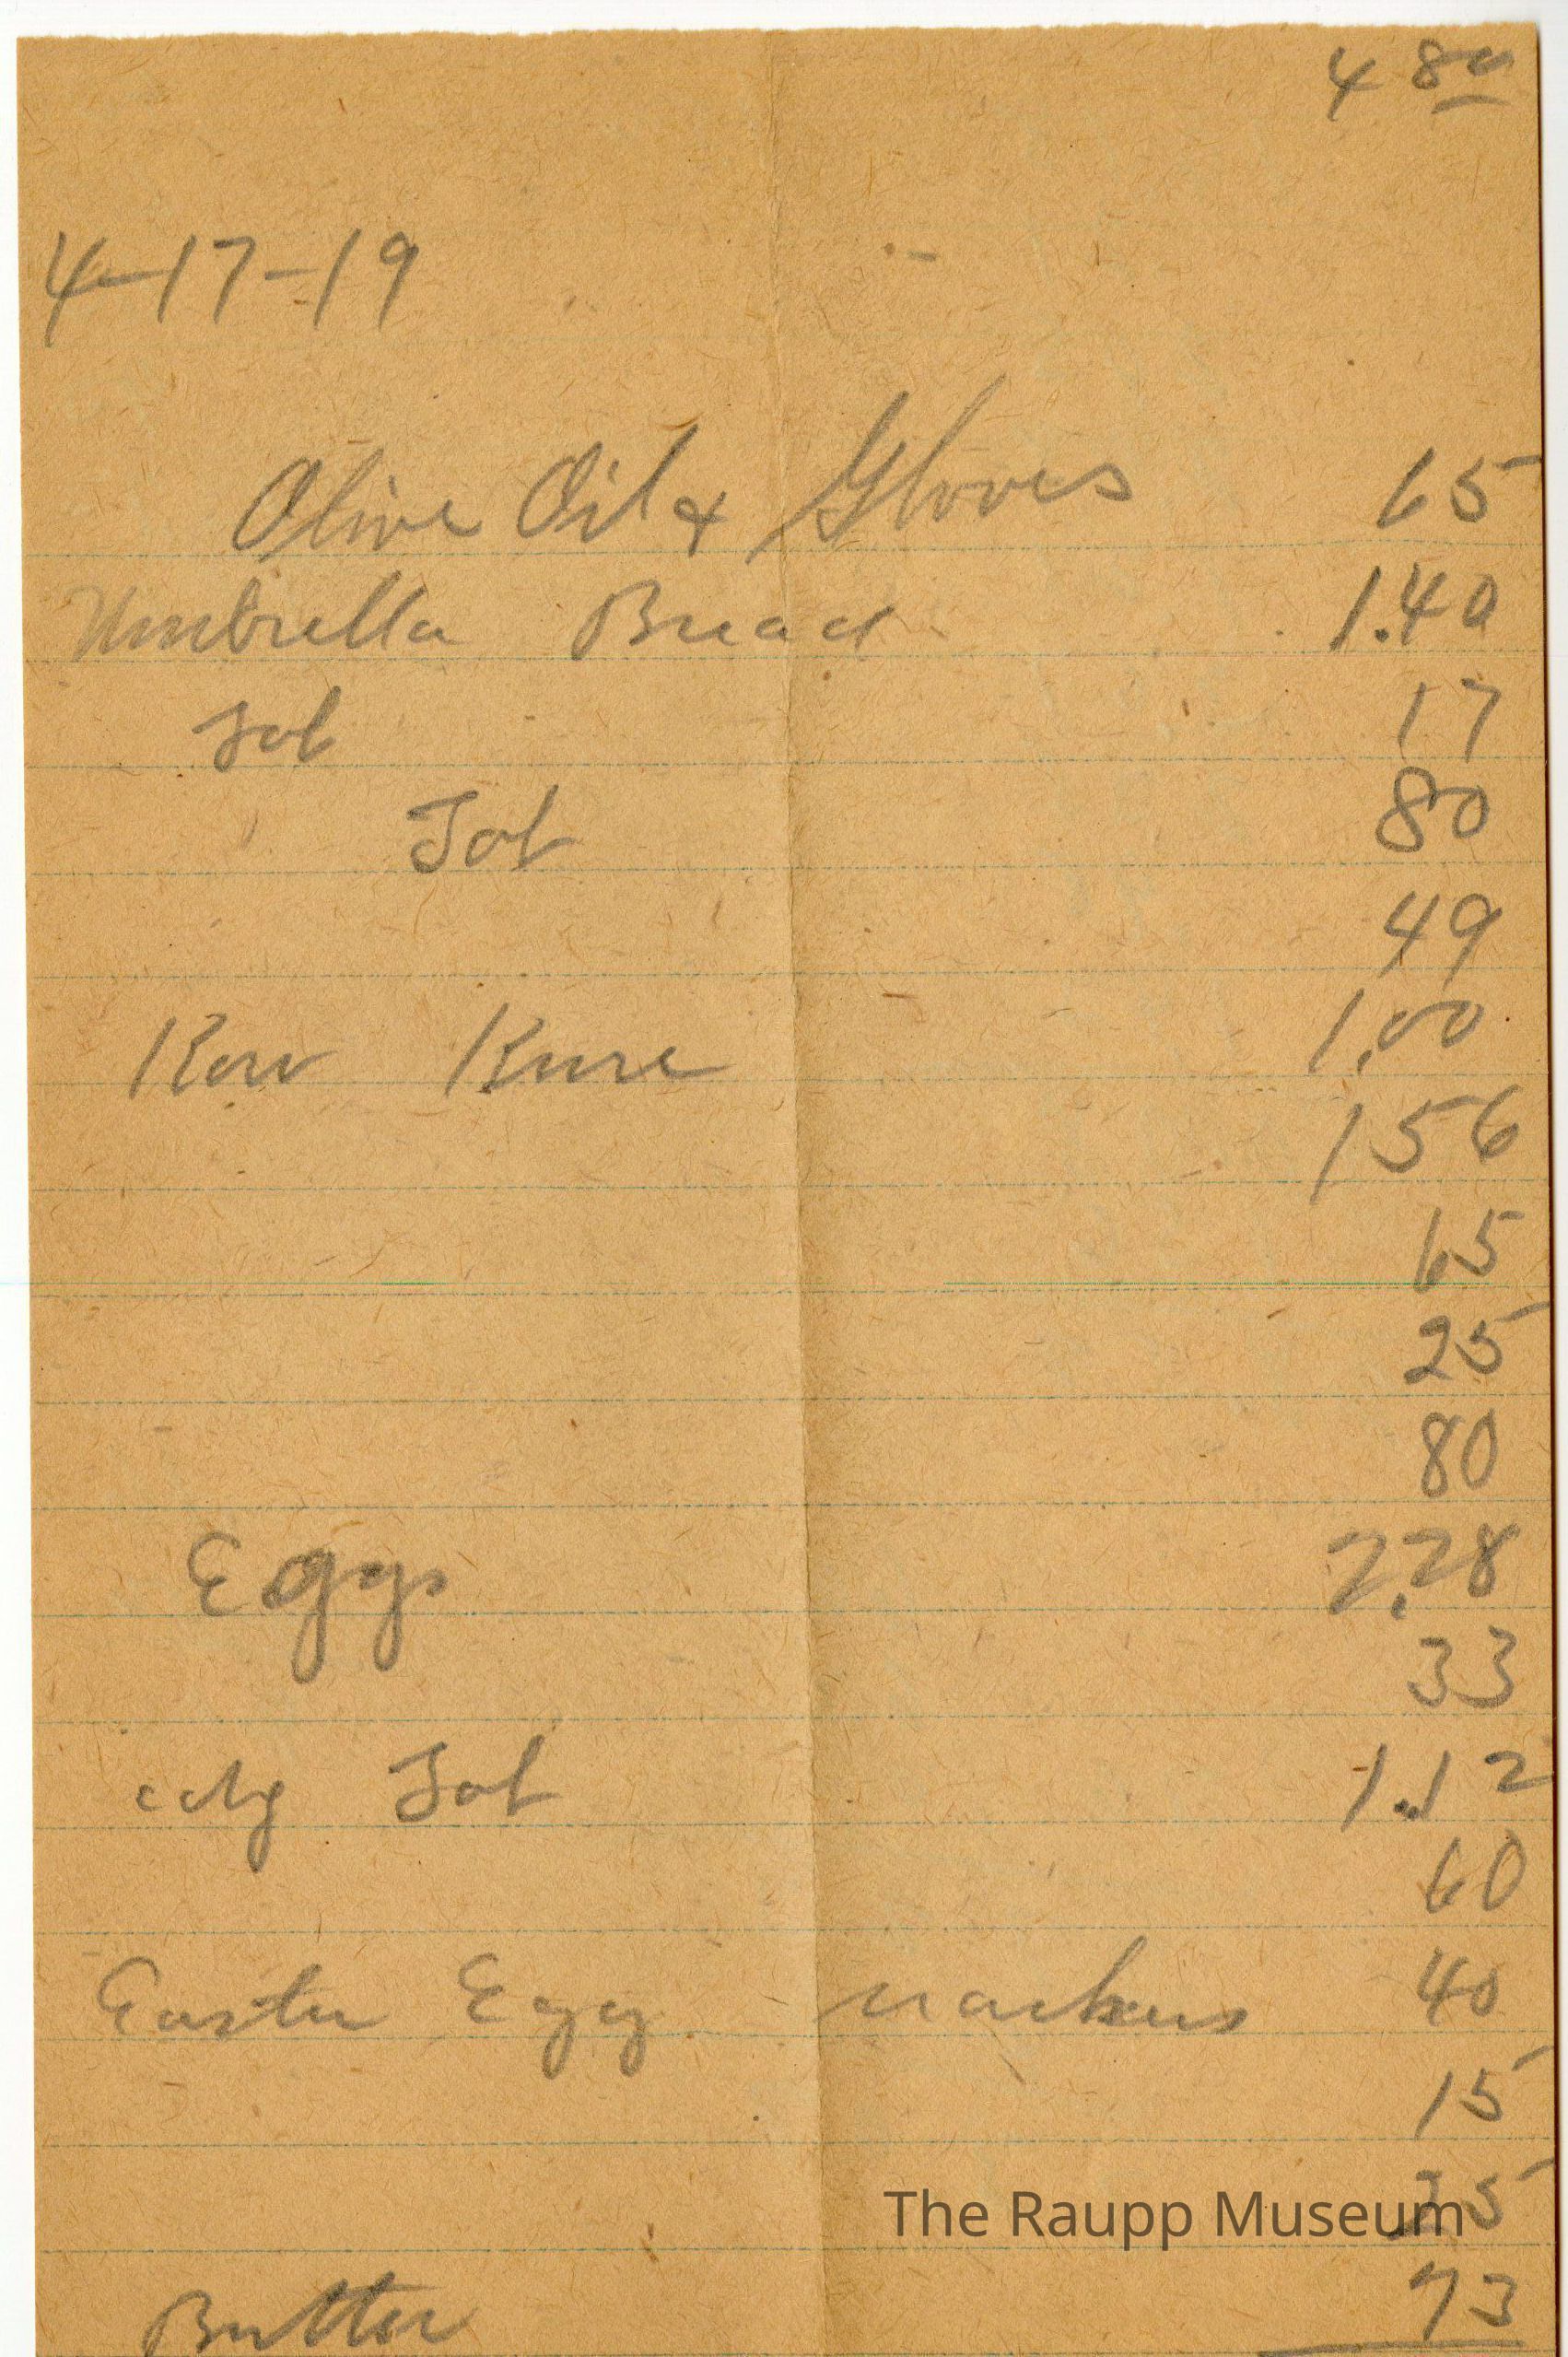 4 80
4-17-19
Olive Oil & Gloves 65
Umbrella Bread 1.40
Tob 17
Tob 80
49
Kow Kure 1.00
156
65
25
80
Eggs 2.28
33
Tob 1.12
60
Easter Egg 40
15
25
The Raupp Museum
Butter 73